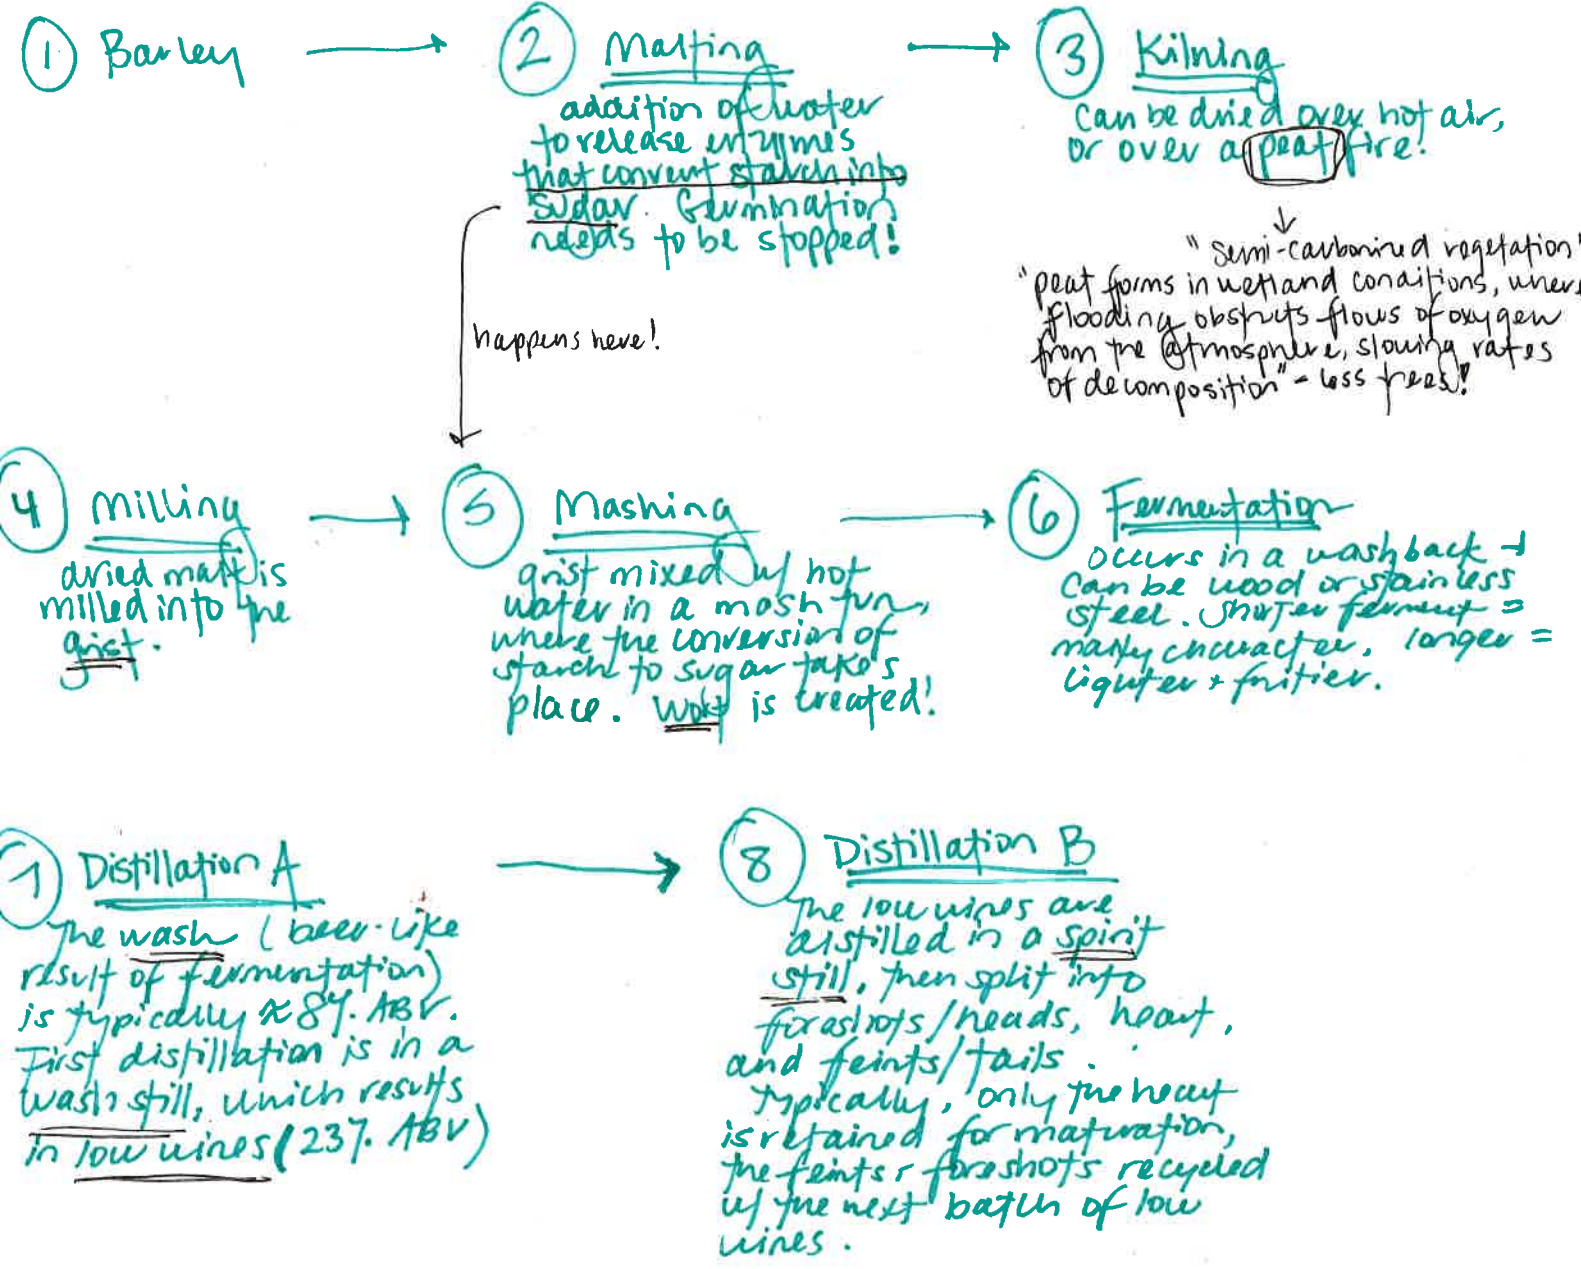 ① Barley
② Malting
addition of water
to release enzymes
that convert starch into
sugar. Germination
needs to be stopped!
happens here!
③ Kilning
can be dried over hot air,
or over a peat fire!
"semi-carbonized vegetation"
"peat forms in wetland conditions, where
flooding obstructs flows of oxygen
from the atmosphere, slowing rates
of decomposition" - less trees!
④ Milling
dried malt is
milled into the
grist.
⑤ Mashing
grist mixed w/ hot
water in a mash tun,
where the conversion of
starch to sugar takes
place. Wort is created!
⑥ Fermentation
occurs in a washback →
can be wood or stainless
steel. Shorter ferment =
malty character. longer =
lighter + fruitier.
⑦ Distillation A
The wash (beer-like
result of fermentation)
is typically ≈ 8% ABV.
First distillation is in a
wash still, which results
in low wines (23% ABV)
⑧ Distillation B
The low wines are
distilled in a spirit
still, then split into
foreshots/heads, heart,
and feints/tails.
Typically, only the heart
is retained for maturation,
the feints + foreshots recycled
w/ the next batch of low
wines.